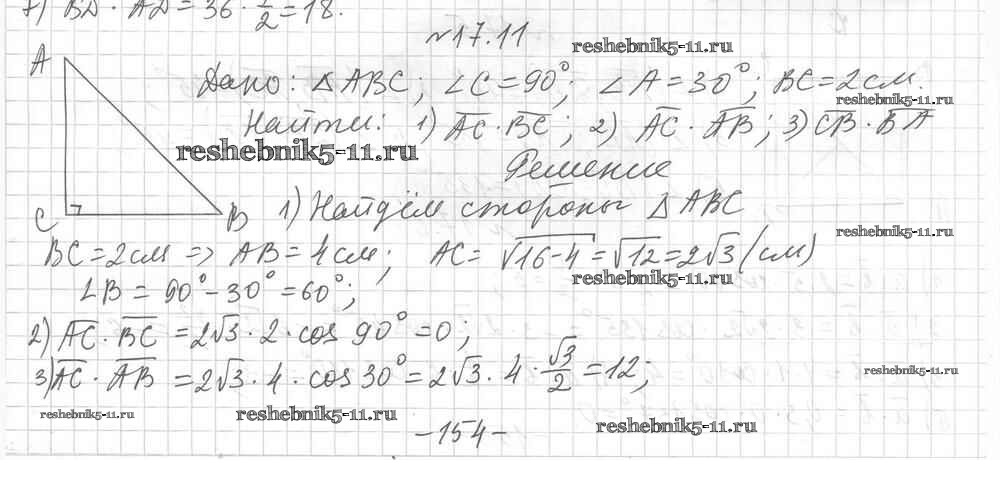 7) BD · AD = 36 · 1/2 = 18.
№17.11
reshebnik5-11.ru
A
Дано: △ABC; ∠C = 90°; ∠A = 30°; BC = 2см.
reshebnik5-11.ru
Найти: 1) A͞C · B͞C; 2) A͞C · A͞B; 3) C͞B · B͞A
reshebnik5-11.ru
Решение
C B 1) Найдём стороны △ABC
reshebnik5-11.ru
BC = 2см => AB = 4см; AC = √16-4 = √12 = 2√3 (см)
reshebnik5-11.ru
∠B = 90° - 30° = 60°;
2) A͞C · B͞C = 2√3 · 2 · cos 90° = 0;
3) A͞C · A͞B = 2√3 · 4 · cos 30° = 2√3 · 4 · √3/2 = 12;
reshebnik5-11.ru
reshebnik5-11.ru
reshebnik5-11.ru
reshebnik5-11.ru
-154-